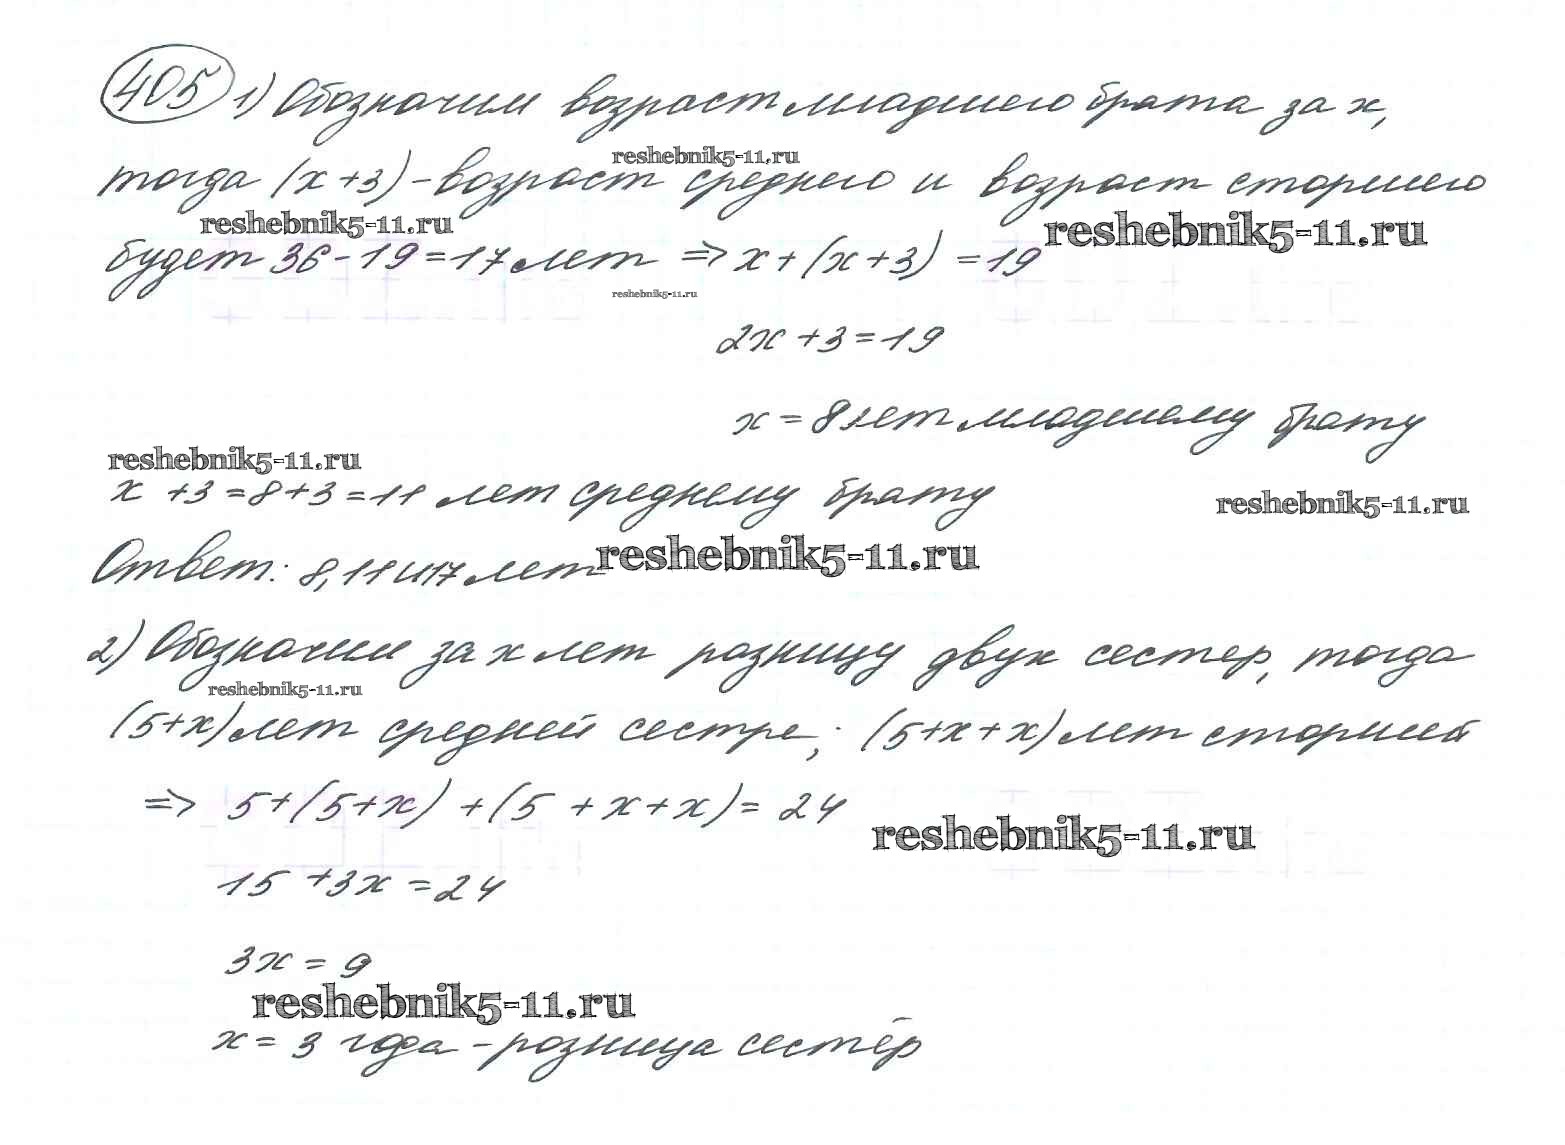 405 1) Обозначим возраст младшего брата за x,
reshebnik5-11.ru
тогда (x+3) - возраст среднего и возраст старшего
reshebnik5-11.ru
reshebnik5-11.ru
будет 36-19=17 лет => x+(x+3) =19
reshebnik5-11.ru
2x+3=19
x=8 лет младшему брату
reshebnik5-11.ru
x +3=8+3=11 лет среднему брату
reshebnik5-11.ru
Ответ: 8, 11 и 17 лет
reshebnik5-11.ru
2) Обозначим за x лет разницу двух сестер, тогда
reshebnik5-11.ru
(5+x) лет средней сестре; (5+x+x) лет старшей
=> 5+(5+x) +(5 +x+x)= 24
reshebnik5-11.ru
15 +3x =24
3x = 9
reshebnik5-11.ru
x= 3 года - разница сестёр